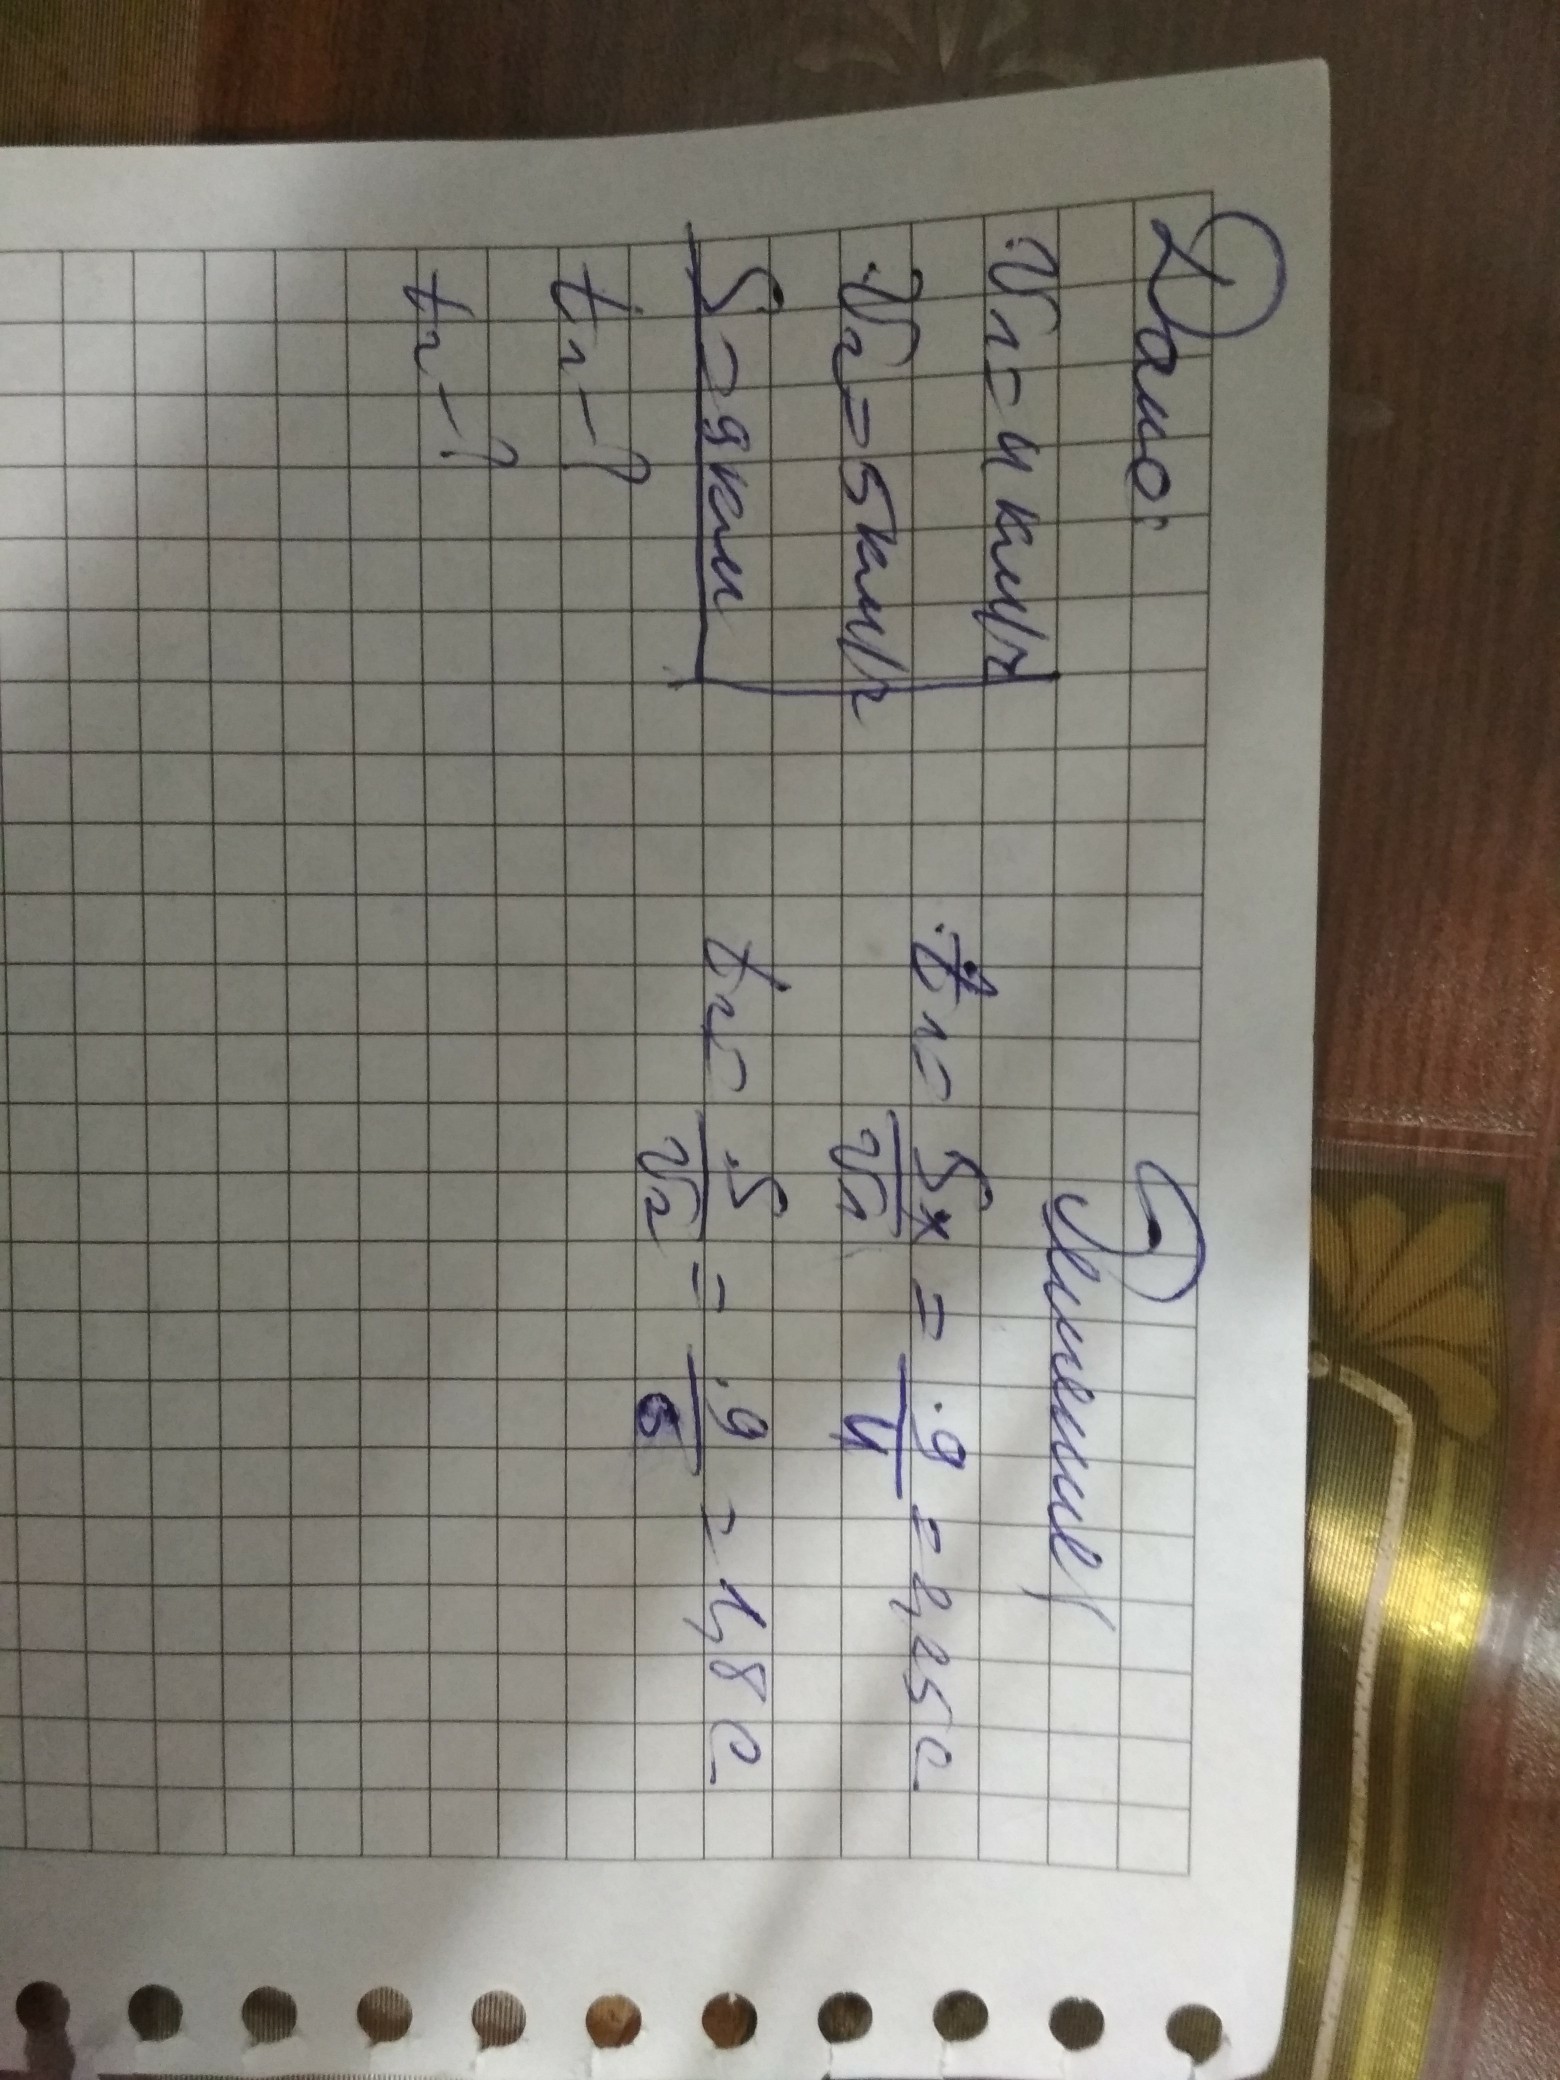 Дано:
V1 = 4 км/ч
V2 = 5 км/ч
S = 9 км
t1 - ?
t2 - ?
Решение
t1 = Sx/V1 = 9/4 = 2,25 с
t2 = S/V2 = 9/5 = 1,8 с